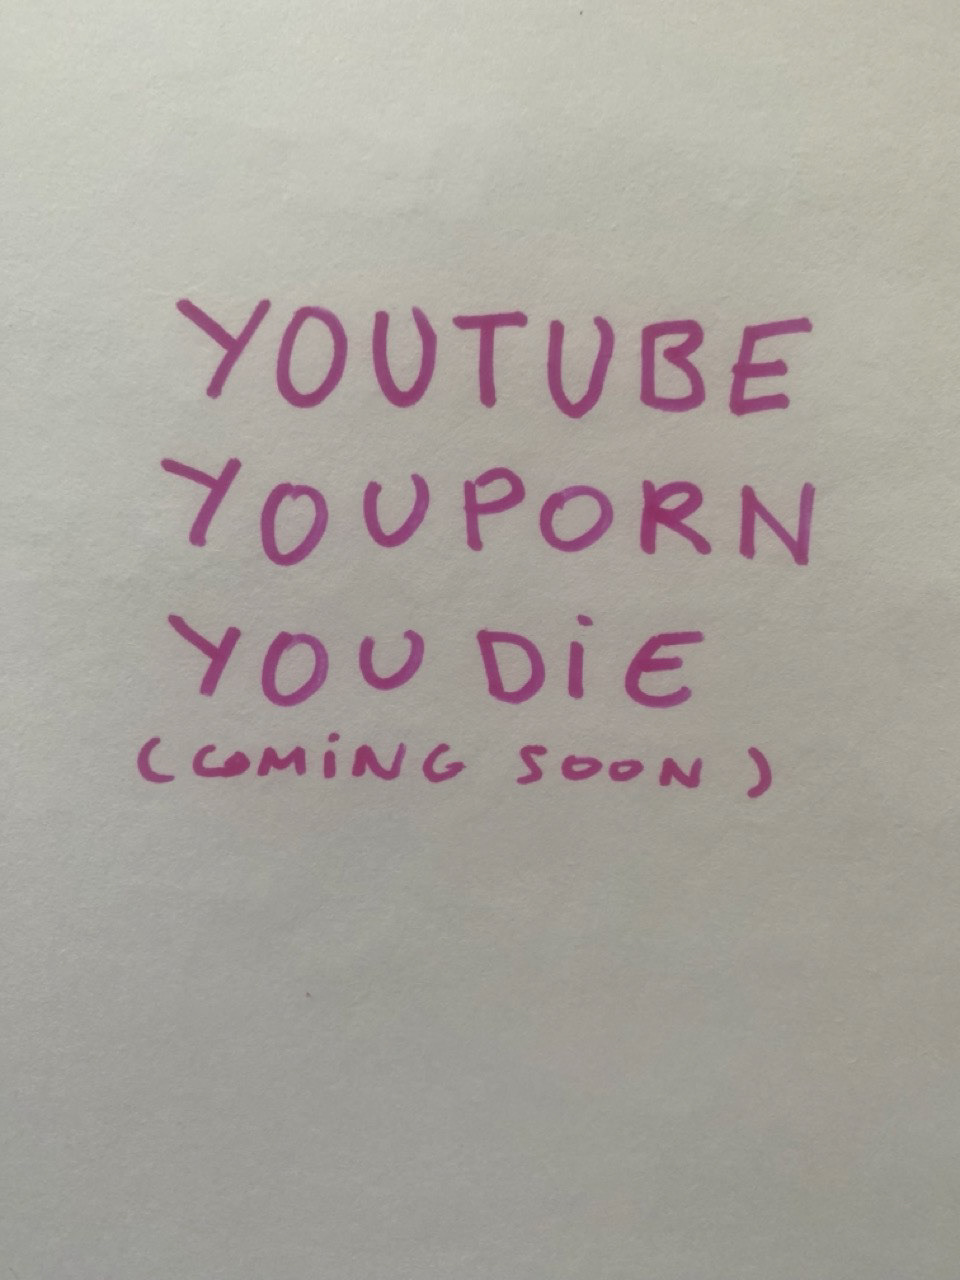 YOUTUBE
YOUPORN
YOU DiE
(COMiNG SOON)